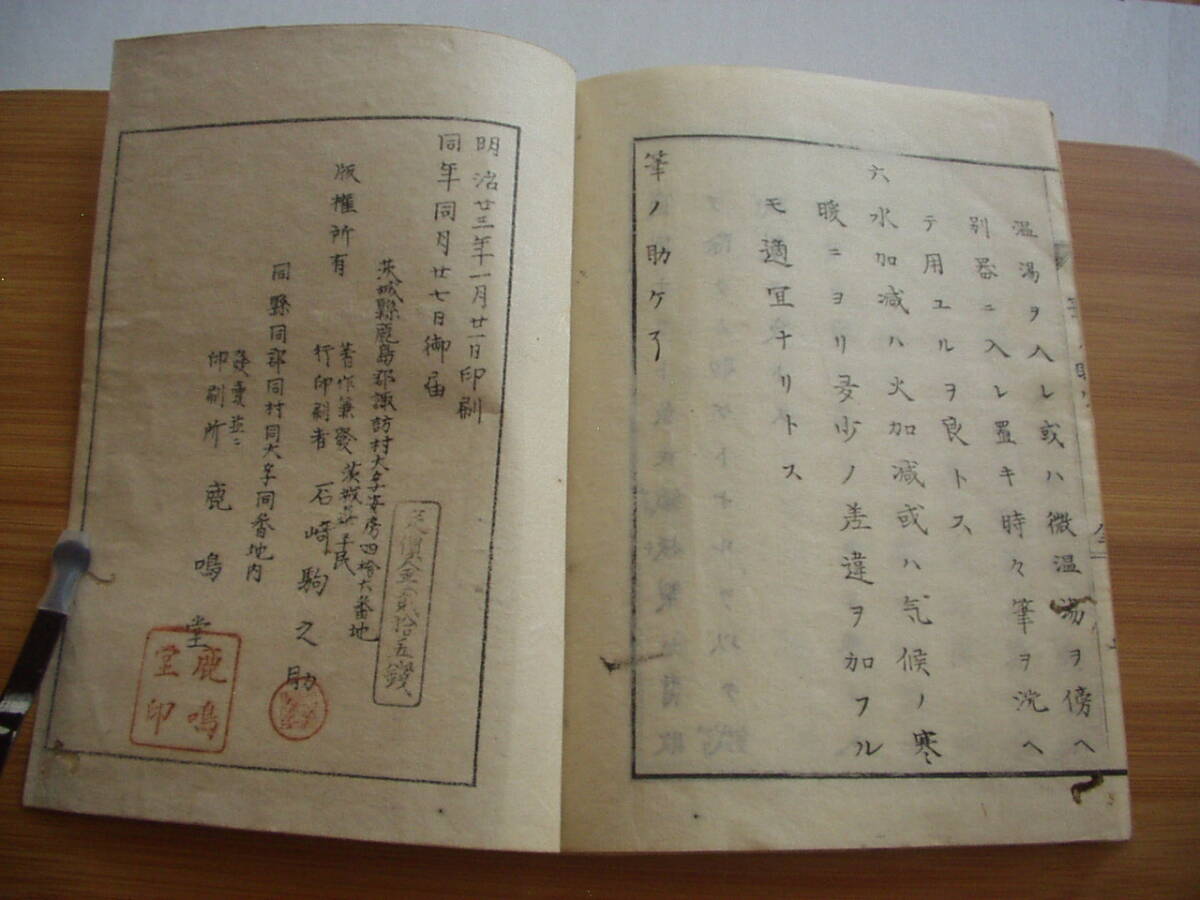 温湯ヲ入レ或ハ微温湯ヲ傍ヘ
別器ニ入レ置キ時々筆ヲ沈ヘ
テ用ユルヲ良トス
六 水加減ハ火加減或ハ気候ノ寒
暖ニヨリ多少ノ差違ヲ加フル
モ適宜ナリトス
筆ノ助ケ了
明治廿三年一月廿一日印刷
同年同月廿七日御届
定價金貳拾五錢
茨城縣鹿島郡諏訪村大字安房四拾六番地
茨城縣平民
版權所有
著作兼發
行印刷者 石崎駒之助
同縣同郡同村同大字同番地内
發賣並ニ
印刷所 鹿鳴堂
鹿鳴
堂印